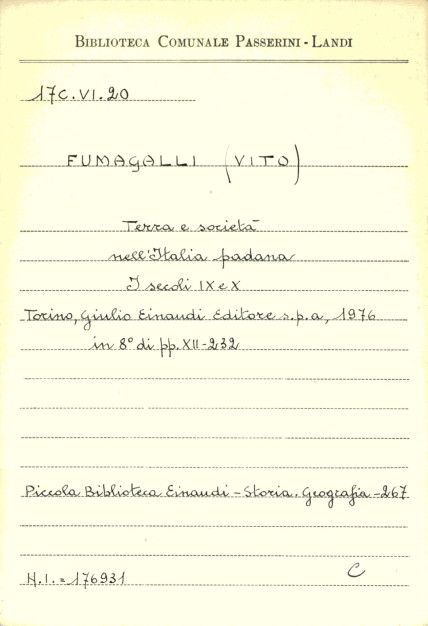 BIBLIOTECA COMUNALE PASSERINI - LANDI
17C.VI.20
FUMAGALLI (VITO)
Terra e società
nell'Italia padana
I secoli IX e X
Torino, Giulio Einaudi Editore s.p.a, 1976
in 8° di pp. XII-232
Piccola Biblioteca Einaudi - Storia. Geografia - 267
N.I. = 176931
C